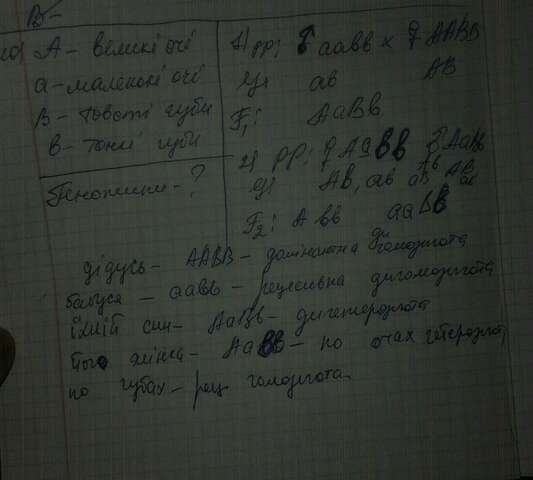 В -
А - великі очі
а - маленькі очі
В - товсті губи
в - тонкі губи
Генотипи - ?
1) РР: ♂ аавв x ♀ ААВВ
G: ав АВ
F1: АаВв
2) РР: ♀ Аавв ♂ АаВв
G: Ав, ав АВ Ав аВ ав
F2: А вв ааВв
дідусь - ААВВ - домінантна дигомозигота
бабуся - аавв - рецесивна дигомозигота
їхній син - АаВв - дигетерозигота
його жінка - Аавв - по очах гетерозигота,
по губах - рец гомозигота.